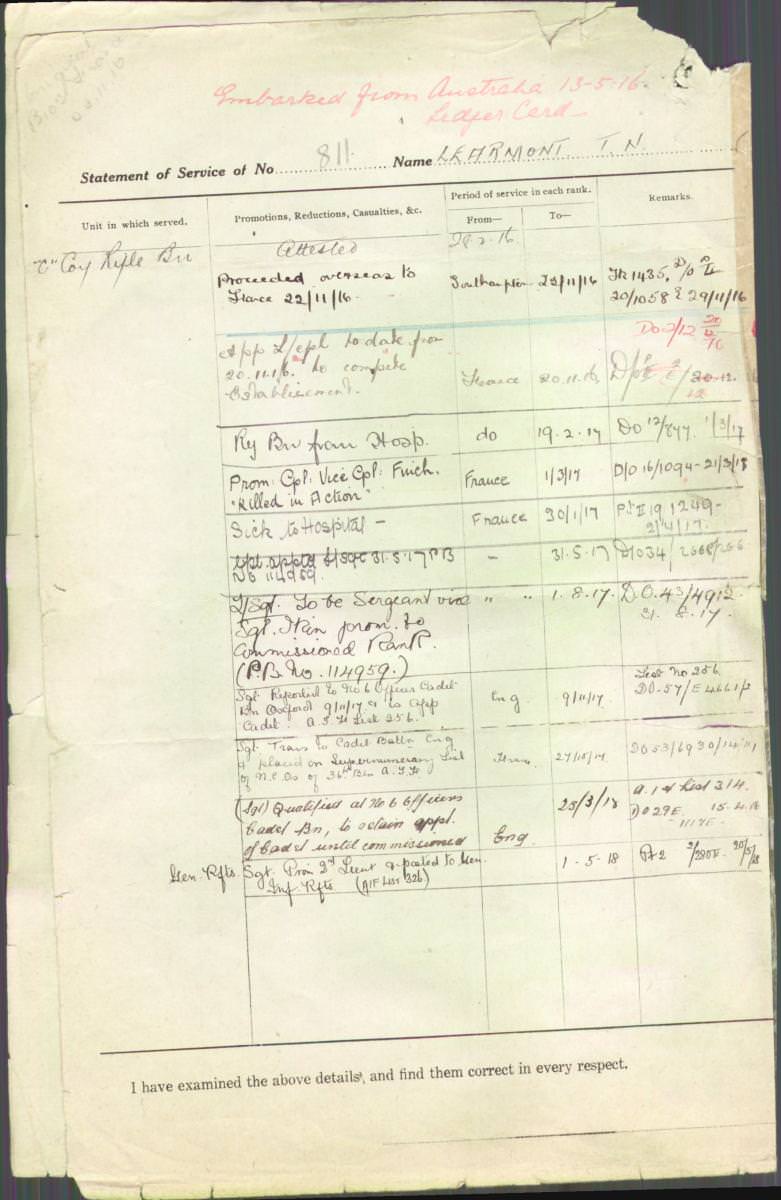 Embarked from Australia 13-5-16.
Ledger Card
Statement of Service of No. 811 Name LEARMONT T. N.
Unit in which served. Promotions, Reductions, Casualties, &c. Period of service in each rank. Remarks.
From— To—
Attested
"C" Coy Rifle Bn
Proceeded overseas to Southampton 22/11/16
France 22/11/16. 20/1058 29/11/16
App L/Cpl to date from
20.11.16. to complete France 20.11.16
Establishment.
Rej Bn from Hosp. do 19.2.17 DO 12/877. 1/3/17
Prom: Cpl: Vice Cpl: Finch. France 1/3/17 D/O 16/1094-21/3/17
"Killed in Action"
Sick to Hospital - France 30/1/17 Pt II 19 1249-
2/4/17.
31.5.17 PB - 31.5.17 D/O34/
No 114959.
L/Sgt. To be Sergeant vice " " 1.8.17. DO.43/4912
Sgt. Hain prom. to 31.8.17.
Commissioned Rank.
(P.B. No. 114959.)
Sgt Reported to No 6 Officer Cadet Eng 9/11/17. List No 256.
Bn Oxford 9/11/17 & is app DO.57/E
Cadet. A.I.F. List 256.
Sgt. Trans to Cadet Battn Eng
& placed on Supernumerary List
of N.C.Os of 36th Bn A.I.F.
(Sgt) Qualified at No 6 Officers 25/3/18 A.I.F List 314.
Cadet Bn, to retain appt. DO 29E. 15.4.18
of Cadet until commissioned Eng 1117E.
Gen. Rfts. Sgt. Prom 2d Lieut & posted to Gen. 1-5-18 Pt 2 20/5/18
Inf. Rfts (AIF LIST 326)
I have examined the above details, and find them correct in every respect.